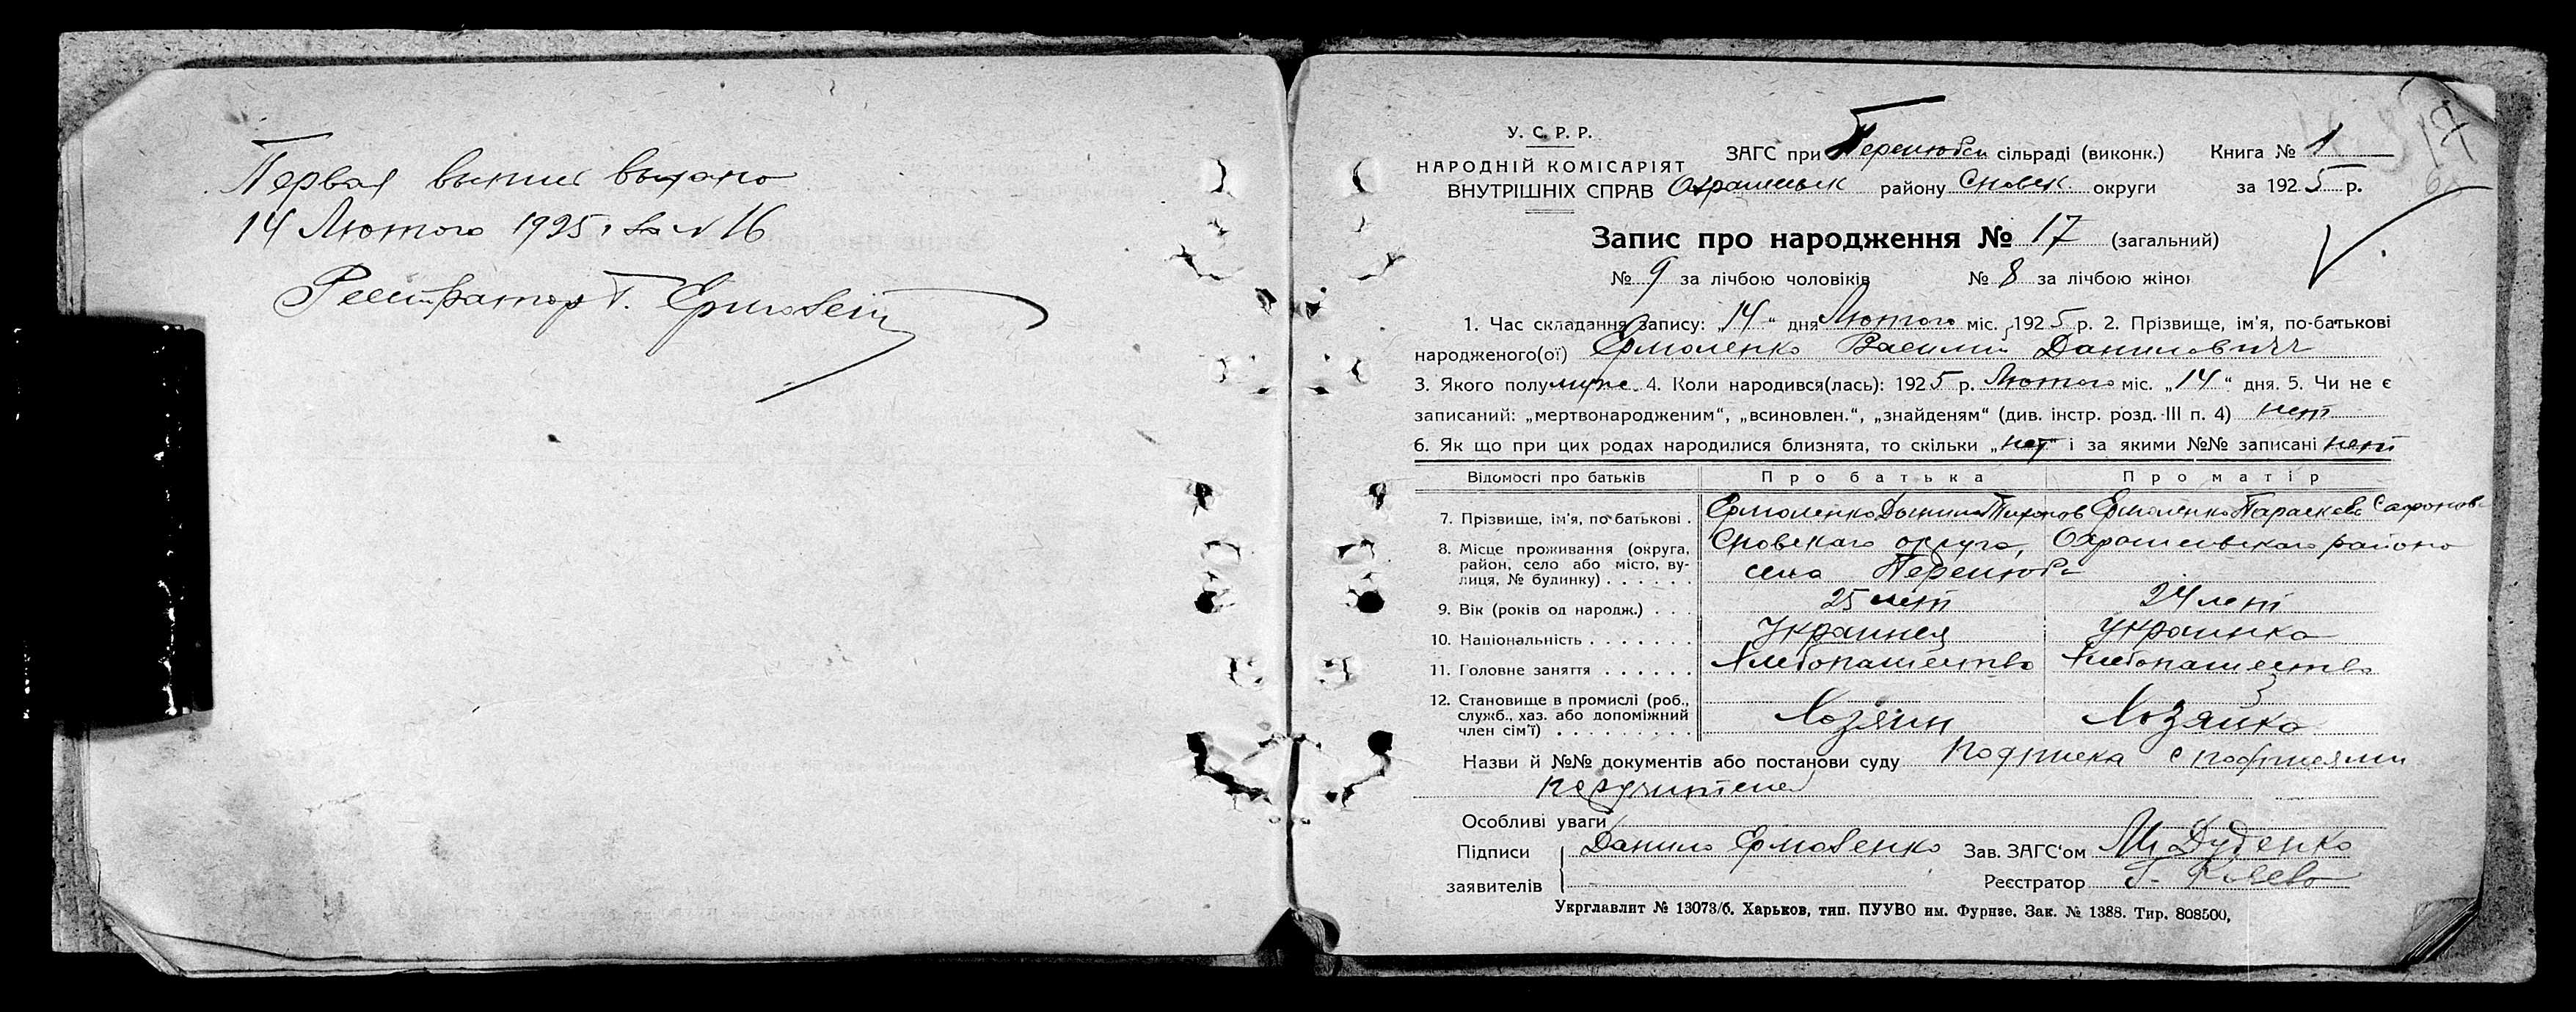 Первая выпись выдано
14 Лютого 1925 г. за N 16
Реестратор Г.
17
У. С. Р. Р.
НАРОДНІЙ КОМІСАРІЯТ
ВНУТРІШНІХ СПРАВ
ЗАГС при Перелюбск сільраді (виконк.) Книга № 1
району Сновск. округи за 1925 р.
Запис про народження № 17 (загальний)
№ 9 за лічбою чоловіків № 8 за лічбою жінок
1. Час складання запису: „14“ дня Лютого міс. 1925 р. 2. Прізвище, ім'я, по-батькові
народженого(ої) Ермоленко Василий Данилович
3. Якого полу муже. 4. Коли народився(лась): 1925 р. Лютого міс. „14“ дня. 5. Чи не є
записаний: „мертвонародженим“, „всиновлен.“, „знайденям“ (див. інстр. розд. III п. 4) нет
6. Як що при цих родах народилися близнята, то скільки „нет“ і за якими №№ записані нет
Відомості про батьків Про батька Про матір
7. Прізвище, ім'я, по батькові . Ермоленко Данило Тихонов Ермоленко Параскева Сафонов
8. Місце проживання (округа, район, село або місто, вулиця, № будинку) . . . . . . Сновскаго округа, района
села Перелюб
9. Вік (років од народж.) . . . 25 лет 24 лет
10. Національність . . . . . . . Украинец Украинка
11. Головне заняття . . . . . . Хлебопашество Хлебопашество
12. Становище в промислі (роб., служб., хаз. або допоміжний член сім'ї) . . . . . . . . . Хозяин Хозяйка
Назви й №№ документів або постанови суду Подписка с подписями
поручителей
Особливі уваги
Підписи заявителів Данило Ермоленко Зав. ЗАГС'ом М Дуденко
Реєстратор Г.
Укрглавлит № 13073/б. Харьков, тип. ПУУВО им. Фурнзе. Зак. № 1388. Тир. 808500,